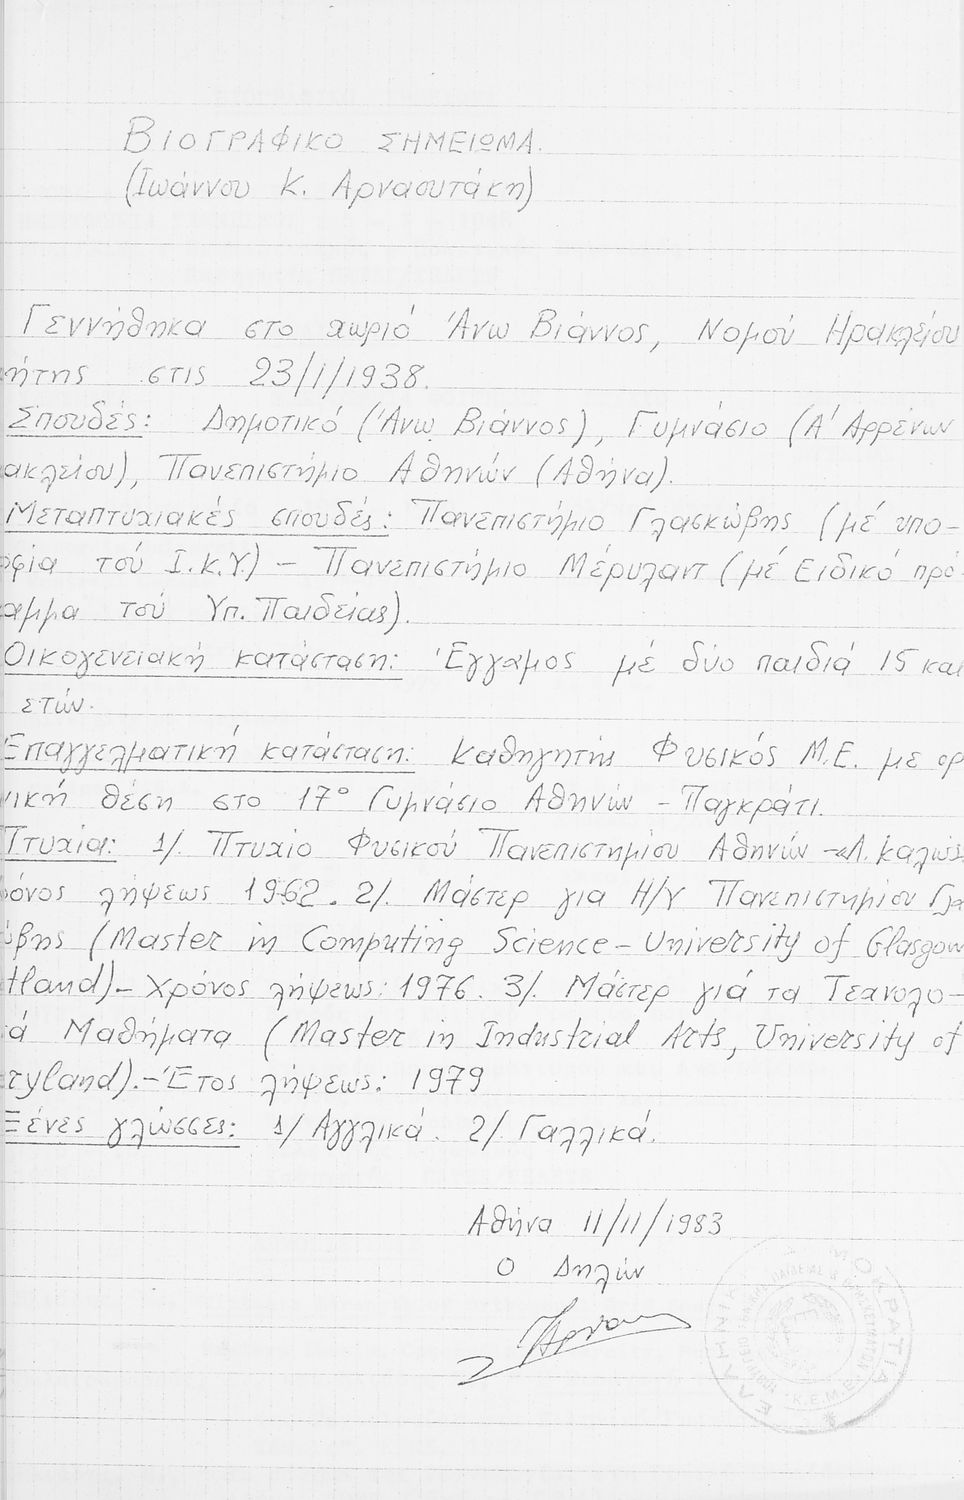 ΒΙΟΓΡΑΦΙΚΟ ΣΗΜΕΙΩΜΑ.
(Ιωάννου Κ. Αρναουτάκη)
Γεννήθηκα στο χωριό Άνω Βιάννος, Νομού Ηρακλείου
ήτης στις 23/1/1938.
Σπουδές: Δημοτικό (Άνω Βιάννος), Γυμνάσιο (Α' Αρρένων
ακλείου), Πανεπιστήμιο Αθηνών (Αθήνα).
Μεταπτυχιακές σπουδές: Πανεπιστήμιο Γλασκώβης (μέ υπο-
οφία τού Ι.Κ.Υ.) - Πανεπιστήμιο Μέρυλαντ (μέ Ειδικό πρό-
αμμα τού Υπ. Παιδείας).
Οικογενειακή κατάσταση: Έγγαμος μέ δύο παιδιά 15 και
ετών.
Επαγγελματική κατάσταση: Καθηγητής Φυσικός Μ.Ε. με ορ
νική θέση στο 17° Γυμνάσιο Αθηνών - Παγκράτι.
Πτυχία: 1/. Πτυχίο Φυσικού Πανεπιστημίου Αθηνών -«Λ. καλώς
ρόνος λήψεως 1962. 2/. Μάστερ για Η/Υ Πανεπιστημίου Γλα
ώβης (Master in Computing Science - University of Glasgow
tland).- Χρόνος λήψεως: 1976. 3/. Μάστερ γιά τα Τεχνολο-
ά Μαθήματα (Master in Industrial Arts, University of
ryland).- Έτος λήψεως: 1979
Ξένες γλώσσες: 1/ Αγγλικά. 2/ Γαλλικά.
Αθήνα 11/11/1983
Ο Δηλών
ΕΛΛΗΝΙΚ ΜΟΚΡΑΤΙΑ
Κ.Ε.Μ.Ε.